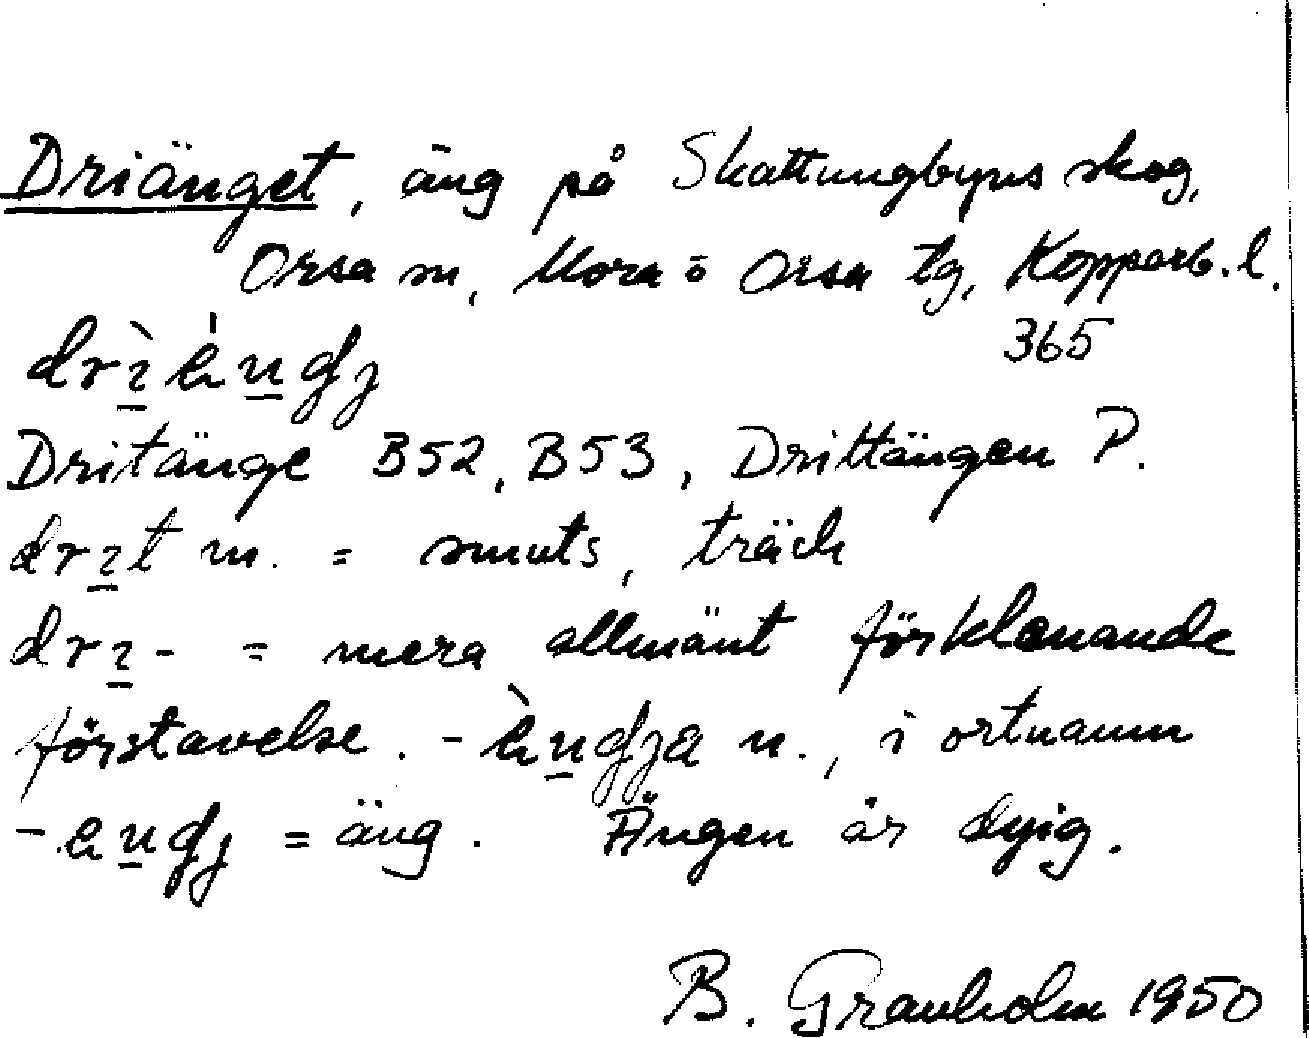 Driänget, äng på Skattungbyns skog,
Orsa sn, Mora o Orsa tg, Kopparb. l.
365
Dritänge B52, B53, Drittängen P.
drɩt m. = smuts, träck
drɩ- = mera allmänt förklenande
förstavelse. - n., i ortnamn
= äng. Ängen är dyig.
B. Granholm 1950